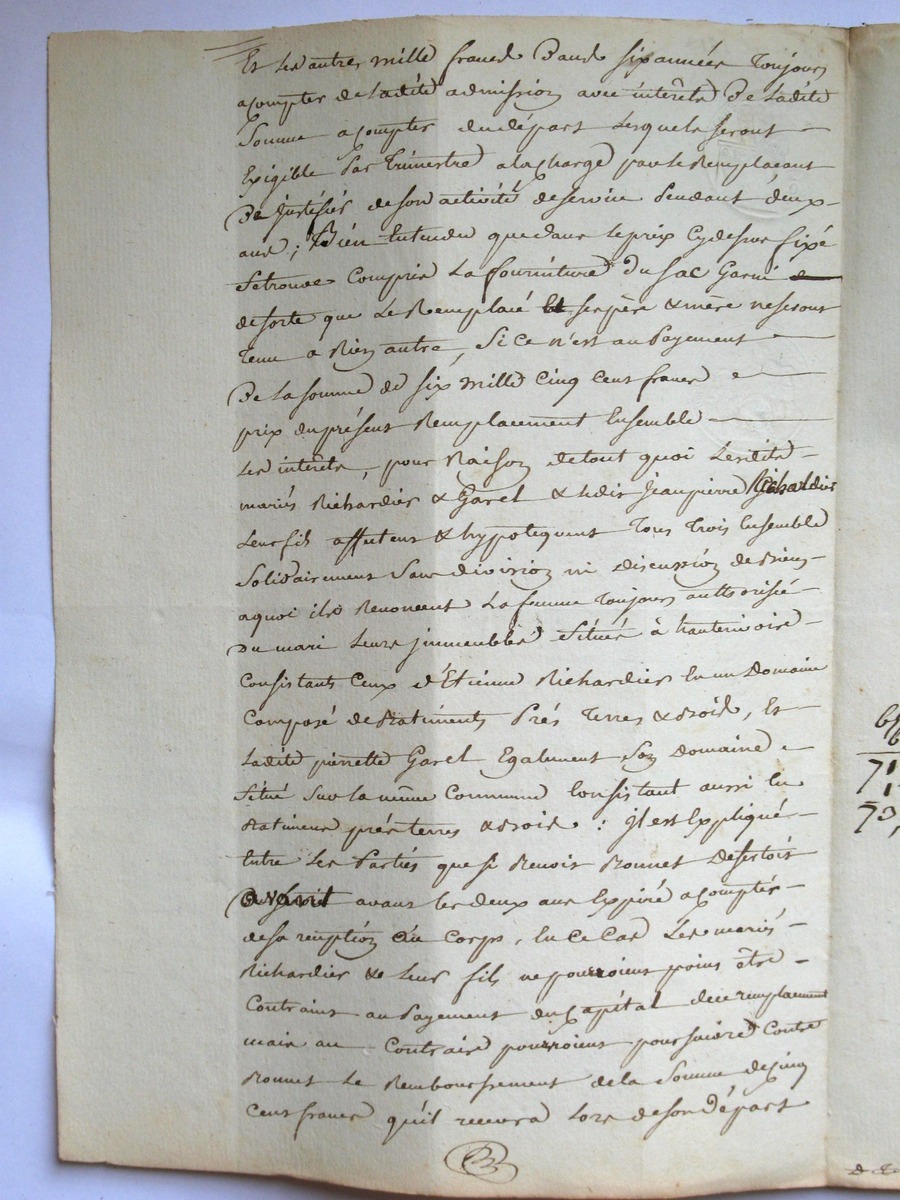 Et les autres mille francs Dans six années Toujours
acompter de Ladite admission avec intérêts De Ladite
Somme acompter du départ Lesquels seront
Exigible Par Trimestre ala charge par le Remplaçant
De justifier de son activité de service Pendant deux
ans ; Bien Entendu que dans le prix Cydessus fixé
Se trouve Compris La fourniture du sac Garni
desorte que Le Remplacé Et ses père & mère ne seront
Tenu a Rien autre, Si ce n'est au Payement
De La somme de six mille Cinq Cent francs
prix du présent Remplacement Ensemble
Les interêts, pour Raison de tout quoi Lesdits
mariés Richardier & Garel & ledit Jeanpierre Richardier
Leur fils affectent & hypotequent Tous Trois Ensemble
Solidairement Sans division ni Discussion de Biens
aquoi ils Renoncent La femme Toujours authorisée
Du mari Leurs jmmeubles Situés à hauterivoire
Consistants Ceux d'Etienne Richardier En un Domaine
Composé de Batiments Prés Terres & Bois, Et
Ladite pierrette Garel Egalement son Domaine
Situé Sur la même Commune Consistant aussi En
Batiments prés terres & bois : jl est Expliqué
Entre Les Parties que si Benoit Bonnet Desertoit
avant les deux ans Expiré acompter
de sa reception au Corps, En ce Cas Les mariés
Richardier & Leur fils ne pourroient point être
Contraint au Payement du Capital de ce remplacement
mais au Contraire pourroient poursuivre Contre
Bonnet Le Remboursement de la Somme de cinq
Cent francs qu'il recevra Lors de son Départ